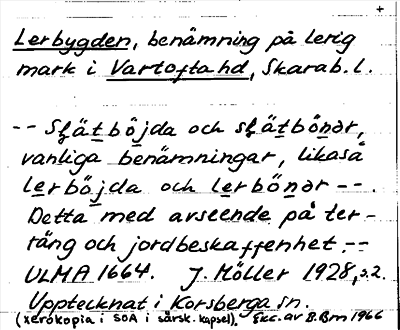 +
Lerbygden, benämning på lerig
mark i Vartofta hd, Skarab. l.
-- slätböjda och slätbönər,
vanliga benämningar, likaså
lerböjda och lerbönər --.
Detta med avseende på ter-
räng och jordbeskaffenhet. --
ULMA 1664. J. Möller 1928, s. 2.
Upptecknat i Korsberga sn.
(xerokopia i SOA i särsk. kapsel). Exc. av B. Bm 1966